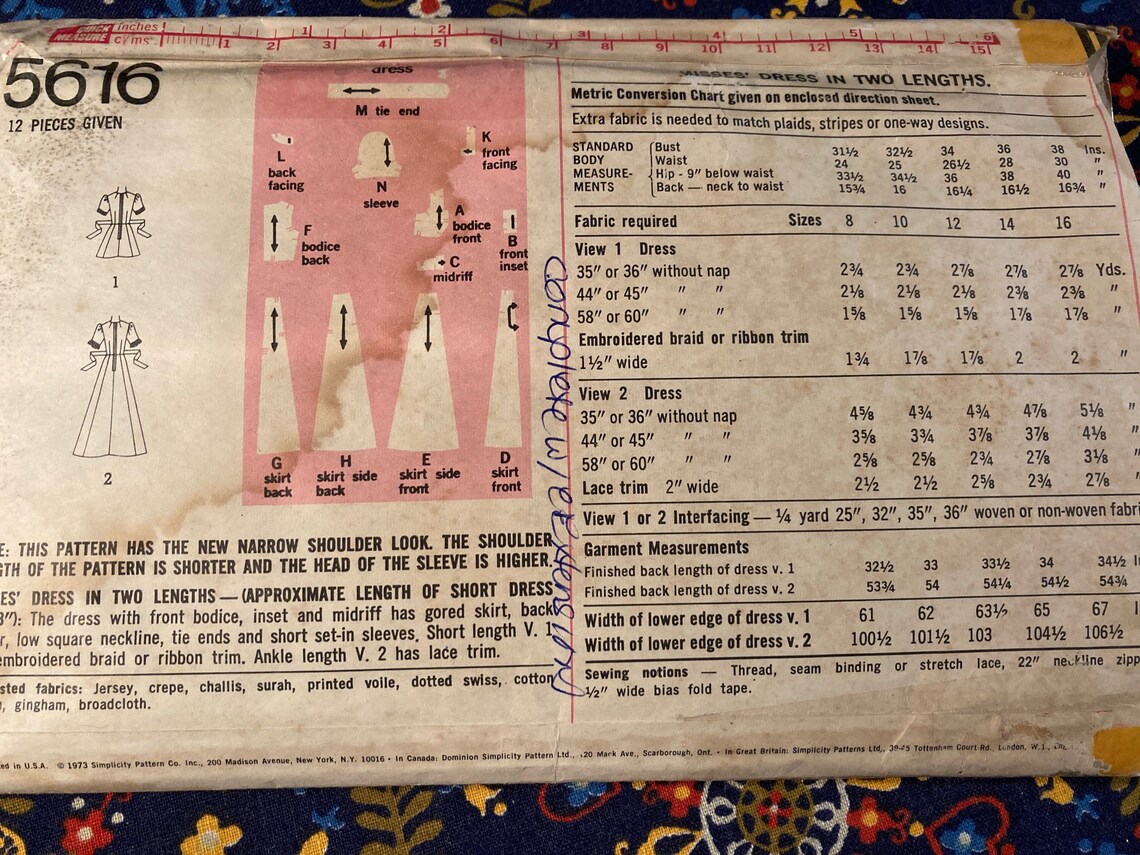 QUICK MEASURE inches 1 2 3 4 5 6
c/ms. 1 2 3 4 5 6 7 8 9 10 11 12 13 14 15
5616
12 PIECES GIVEN
1
2
dress
M tie end
L
back
facing
N
sleeve
K
front
facing
F
bodice
back
A
bodice
front
B
front
inset
C
midriff
G
skirt
back
H
skirt side
back
E
skirt side
front
D
skirt
front
E: THIS PATTERN HAS THE NEW NARROW SHOULDER LOOK. THE SHOULDER
GTH OF THE PATTERN IS SHORTER AND THE HEAD OF THE SLEEVE IS HIGHER.
ES' DRESS IN TWO LENGTHS — (APPROXIMATE LENGTH OF SHORT DRESS
"): The dress with front bodice, inset and midriff has gored skirt, back
r, low square neckline, tie ends and short set-in sleeves. Short length V. 1
embroidered braid or ribbon trim. Ankle length V. 2 has lace trim.
sted fabrics: Jersey, crepe, challis, surah, printed voile, dotted swiss, cotton
, gingham, broadcloth.
complete w/
MISSES' DRESS IN TWO LENGTHS.
Metric Conversion Chart given on enclosed direction sheet.
Extra fabric is needed to match plaids, stripes or one-way designs.
STANDARD BODY MEASURE-MENTS
Bust 31½ 32½ 34 36 38 Ins.
Waist 24 25 26½ 28 30 "
Hip - 9" below waist 33½ 34½ 36 38 40 "
Back — neck to waist 15¾ 16 16¼ 16½ 16¾ "
Fabric required Sizes 8 10 12 14 16
View 1 Dress
35" or 36" without nap 2¾ 2¾ 2⅞ 2⅞ 2⅞ Yds.
44" or 45" " " 2⅛ 2⅛ 2⅛ 2⅜ 2⅜ "
58" or 60" " " 1⅝ 1⅝ 1⅝ 1⅞ 1⅞ "
Embroidered braid or ribbon trim
1½" wide 1¾ 1⅞ 1⅞ 2 2 "
View 2 Dress
35" or 36" without nap 4⅝ 4¾ 4¾ 4⅞ 5⅛ "
44" or 45" " " 3⅝ 3¾ 3⅞ 3⅞ 4⅛ "
58" or 60" " " 2⅝ 2⅝ 2¾ 2⅞ 3⅛ "
Lace trim 2" wide 2½ 2½ 2⅝ 2¾ 2⅞ "
View 1 or 2 Interfacing — ¼ yard 25", 32", 35", 36" woven or non-woven fabri
Garment Measurements
Finished back length of dress v. 1 32½ 33 33½ 34 34½ I
Finished back length of dress v. 2 53¾ 54 54¼ 54½ 54¾
Width of lower edge of dress v. 1 61 62 63½ 65 67
Width of lower edge of dress v. 2 100½ 101½ 103 104½ 106½
Sewing notions — Thread, seam binding or stretch lace, 22" neckline zipp
½" wide bias fold tape.
ed in U.S.A. © 1973 Simplicity Pattern Co. Inc., 200 Madison Avenue, New York, N.Y. 10016 • In Canada: Dominion Simplicity Pattern Ltd., 120 Mark Ave., Scarborough, Ont. • In Great Britain: Simplicity Patterns Ltd., 39-45 Tottenham Court Rd. London, W.1.,